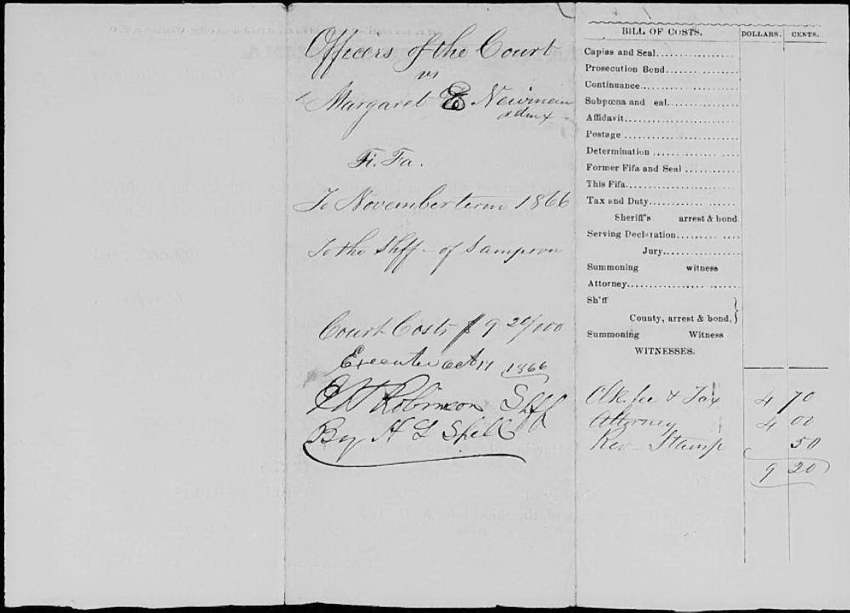 Officers of the Court
vs
Margaret E Newman
admx
Fi. Fa.
To November term 1866
To the Shff of Sampson
Court Costs $ 9 20/100
Executed Oct 17 1866
Robinson Shff
By H L
BILL OF COSTS.
DOLLARS.
CENTS.
Capias and Seal
Prosecution Bond
Continuance
Subpœna and eal
Affidavit
Postage
Determination
Former Fifa and Seal
This Fifa
Tax and Duty
Sheriff's arrest & bond
Serving Declaration
Jury
Summoning witness
Attorney
Sh'ff
County, arrest & bond,
Summoning Witness
WITNESSES.
Clk fee & Tax 4 70
Attorney 4 00
Rev Stamp 50
9 20